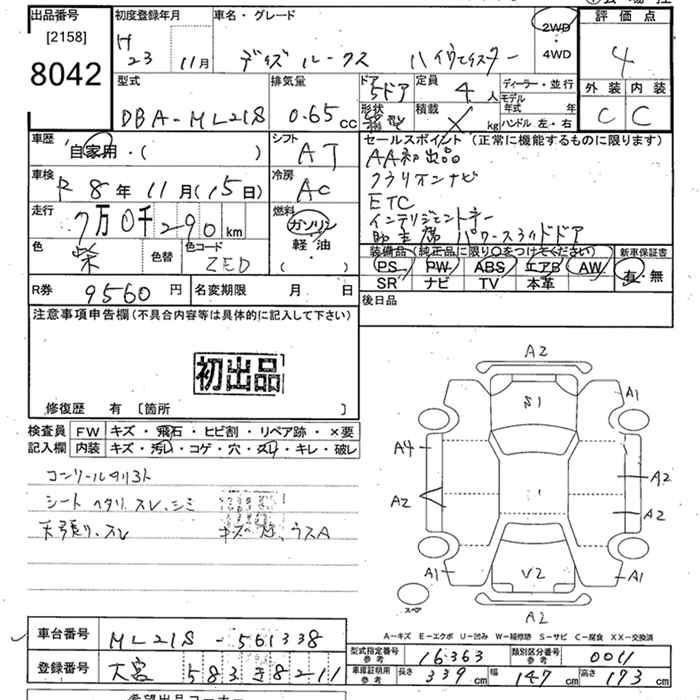 出品番号
[2158]
8042
初度登録年月
H 23 11月
車名・グレード
デイズ ルークス ハイウェイスター
2WD
・
4WD
評価点
4
外装 内装
C C
型式
DBA-ML21S
排気量
0.65 cc
ドア
5ドア
形状
箱型
定員
4 人
積載
kg
ディーラー・並行
モデル年式 年
ハンドル 左・右
車歴
自家用・( )
シフト
AT
セールスポイント (正常に機能するものに限ります)
AA初出品
クラリオンナビ
ETC
インテリジェントキー
助手席 パワースライドドア
車検
R 8年 11月(15日)
冷房
AC
走行
7万0千290 km
燃料
ガソリン
軽油
( )
色
紫
色替
色コード
ZED
装備品 (純正品に限り○をつけてください)
PS PW ABS エアB AW
SR ナビ TV 本革
新車保証書
有・無
R券 9560円
名変期限 月 日
後日品
注意事項申告欄(不具合内容等は具体的に記入して下さい)
初出品
修復歴 有 〔箇所 〕
検査員
記入欄
FW キズ・飛石・ヒビ割・リペア跡・×要
内装 キズ・汚レ・コゲ・穴・スレ・キレ・破レ
シート ヘタリ、スレ、シミ
天張り、スレ
A2
S1
A1
A4
A2
A2
A2
A1
V2
A1
A2
スペア
A-キズ E-エクボ U-凹み W-補修跡 S-サビ C-腐食 XX-交換済
車台番号 ML21S-561338
登録番号 大宮 583 き 8211
型式指定番号
参考
16363
類別区分番号
参考
0011
車庫証明用
参考
長さ 339cm 幅 147cm 高さ 173cm